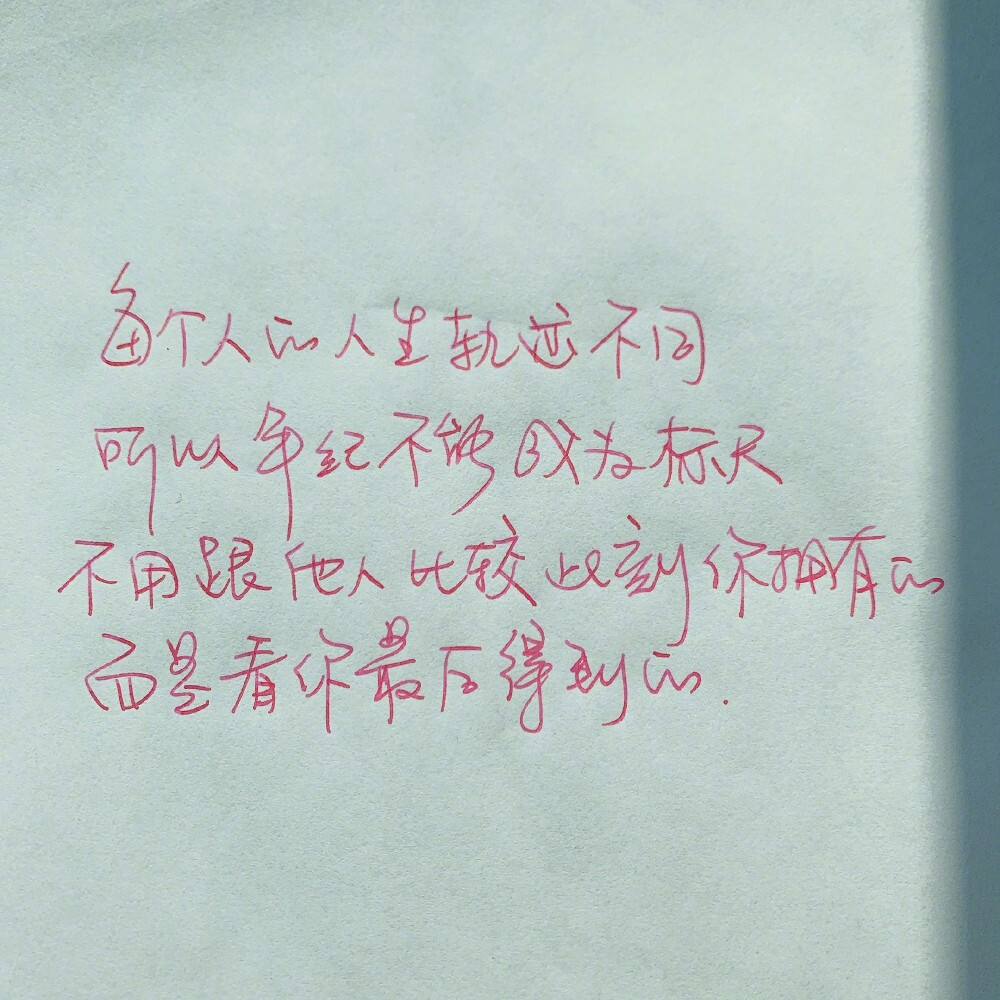 每个人的人生轨迹不同
所以年纪不能成为标尺
不用跟他人比较此刻你拥有的
而是看你最后得到的.